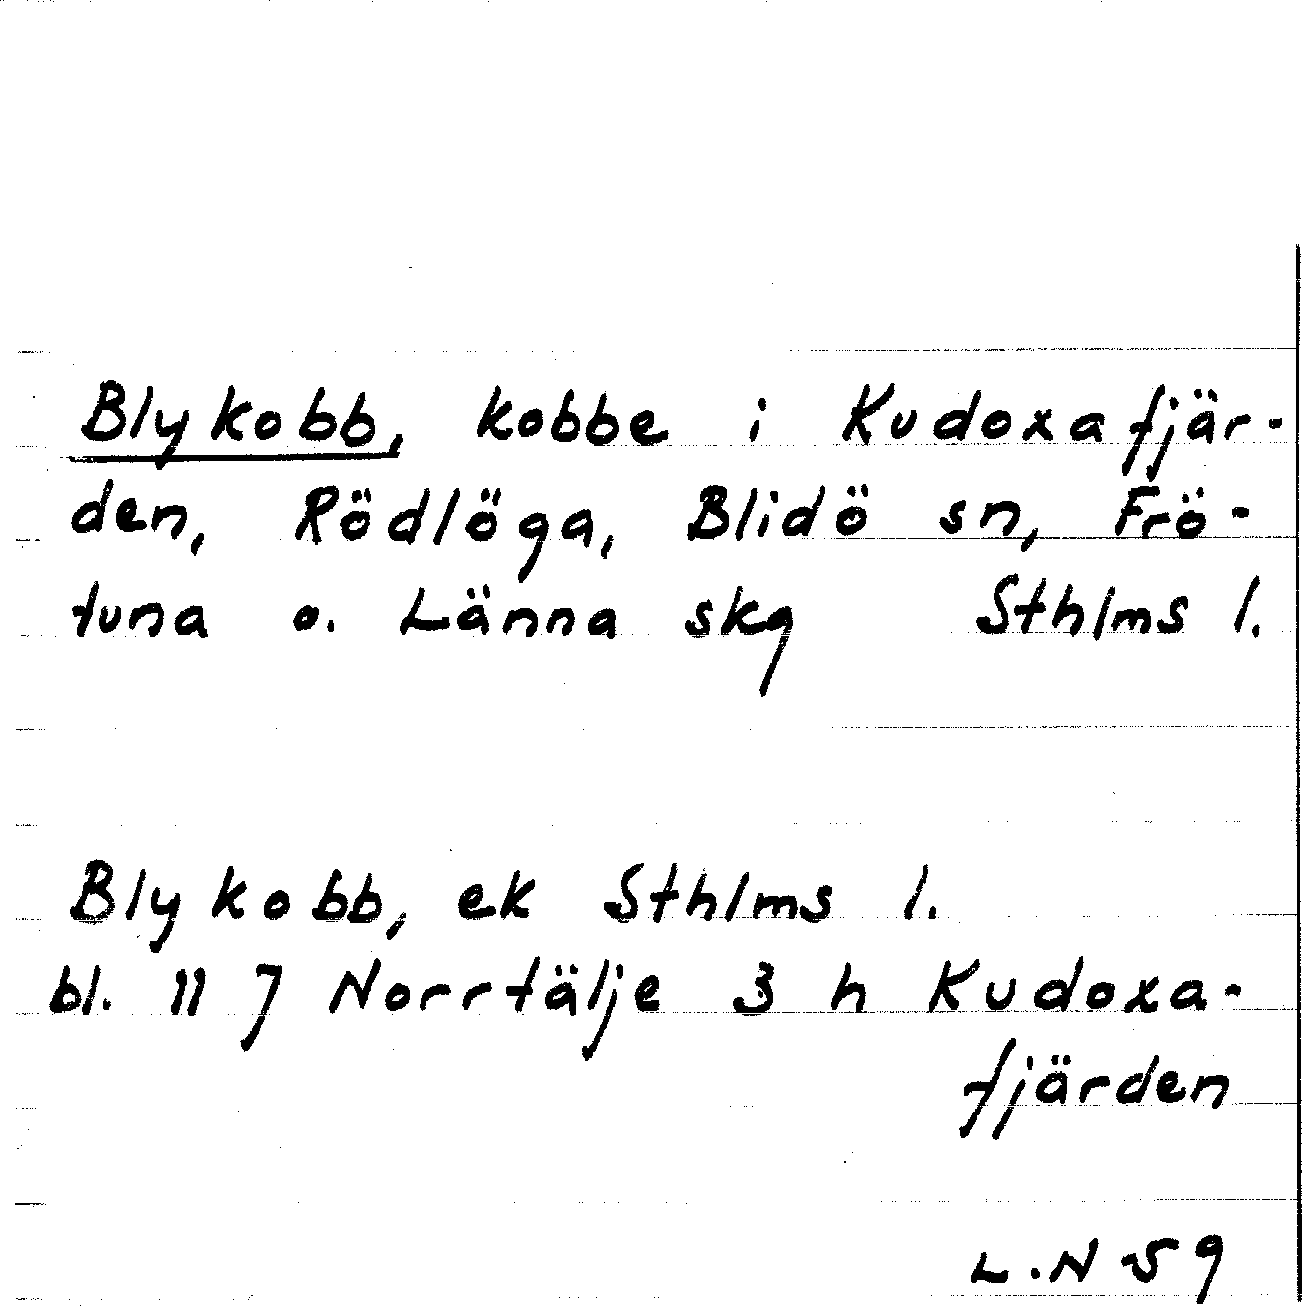 Blykobb, kobbe i Kudoxafjär-
den, Rödlöga, Blidö sn, Frö-
tuna o. Länna skg Sthlms l.
Blykobb, ek Sthlms l.
bl. 11 J Norrtälje 3 h Kudoxa-
fjärden
L.N 59